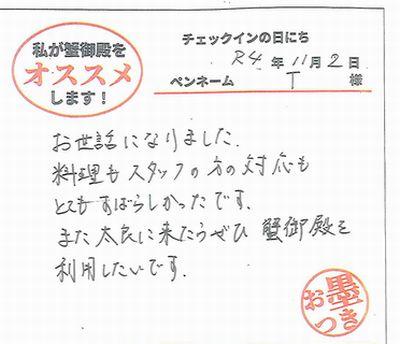 私が蟹御殿を
オススメ
します！
チェックインの日にち
R4年11月2日
ペンネーム T 様
お世話になりました.
料理もスタッフの方の対応も
とてもすばらしかったです.
また太良に来たらぜひ 蟹御殿を
利用したいです.
お墨つき